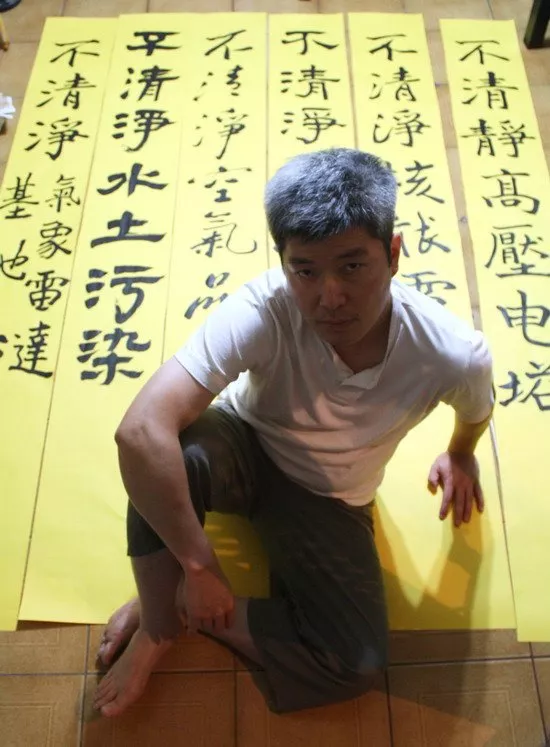 不清靜高壓电塔
不清淨核能電
不清淨
不清淨空氣品
不清淨水土污染
不清淨氣象雷達
基地